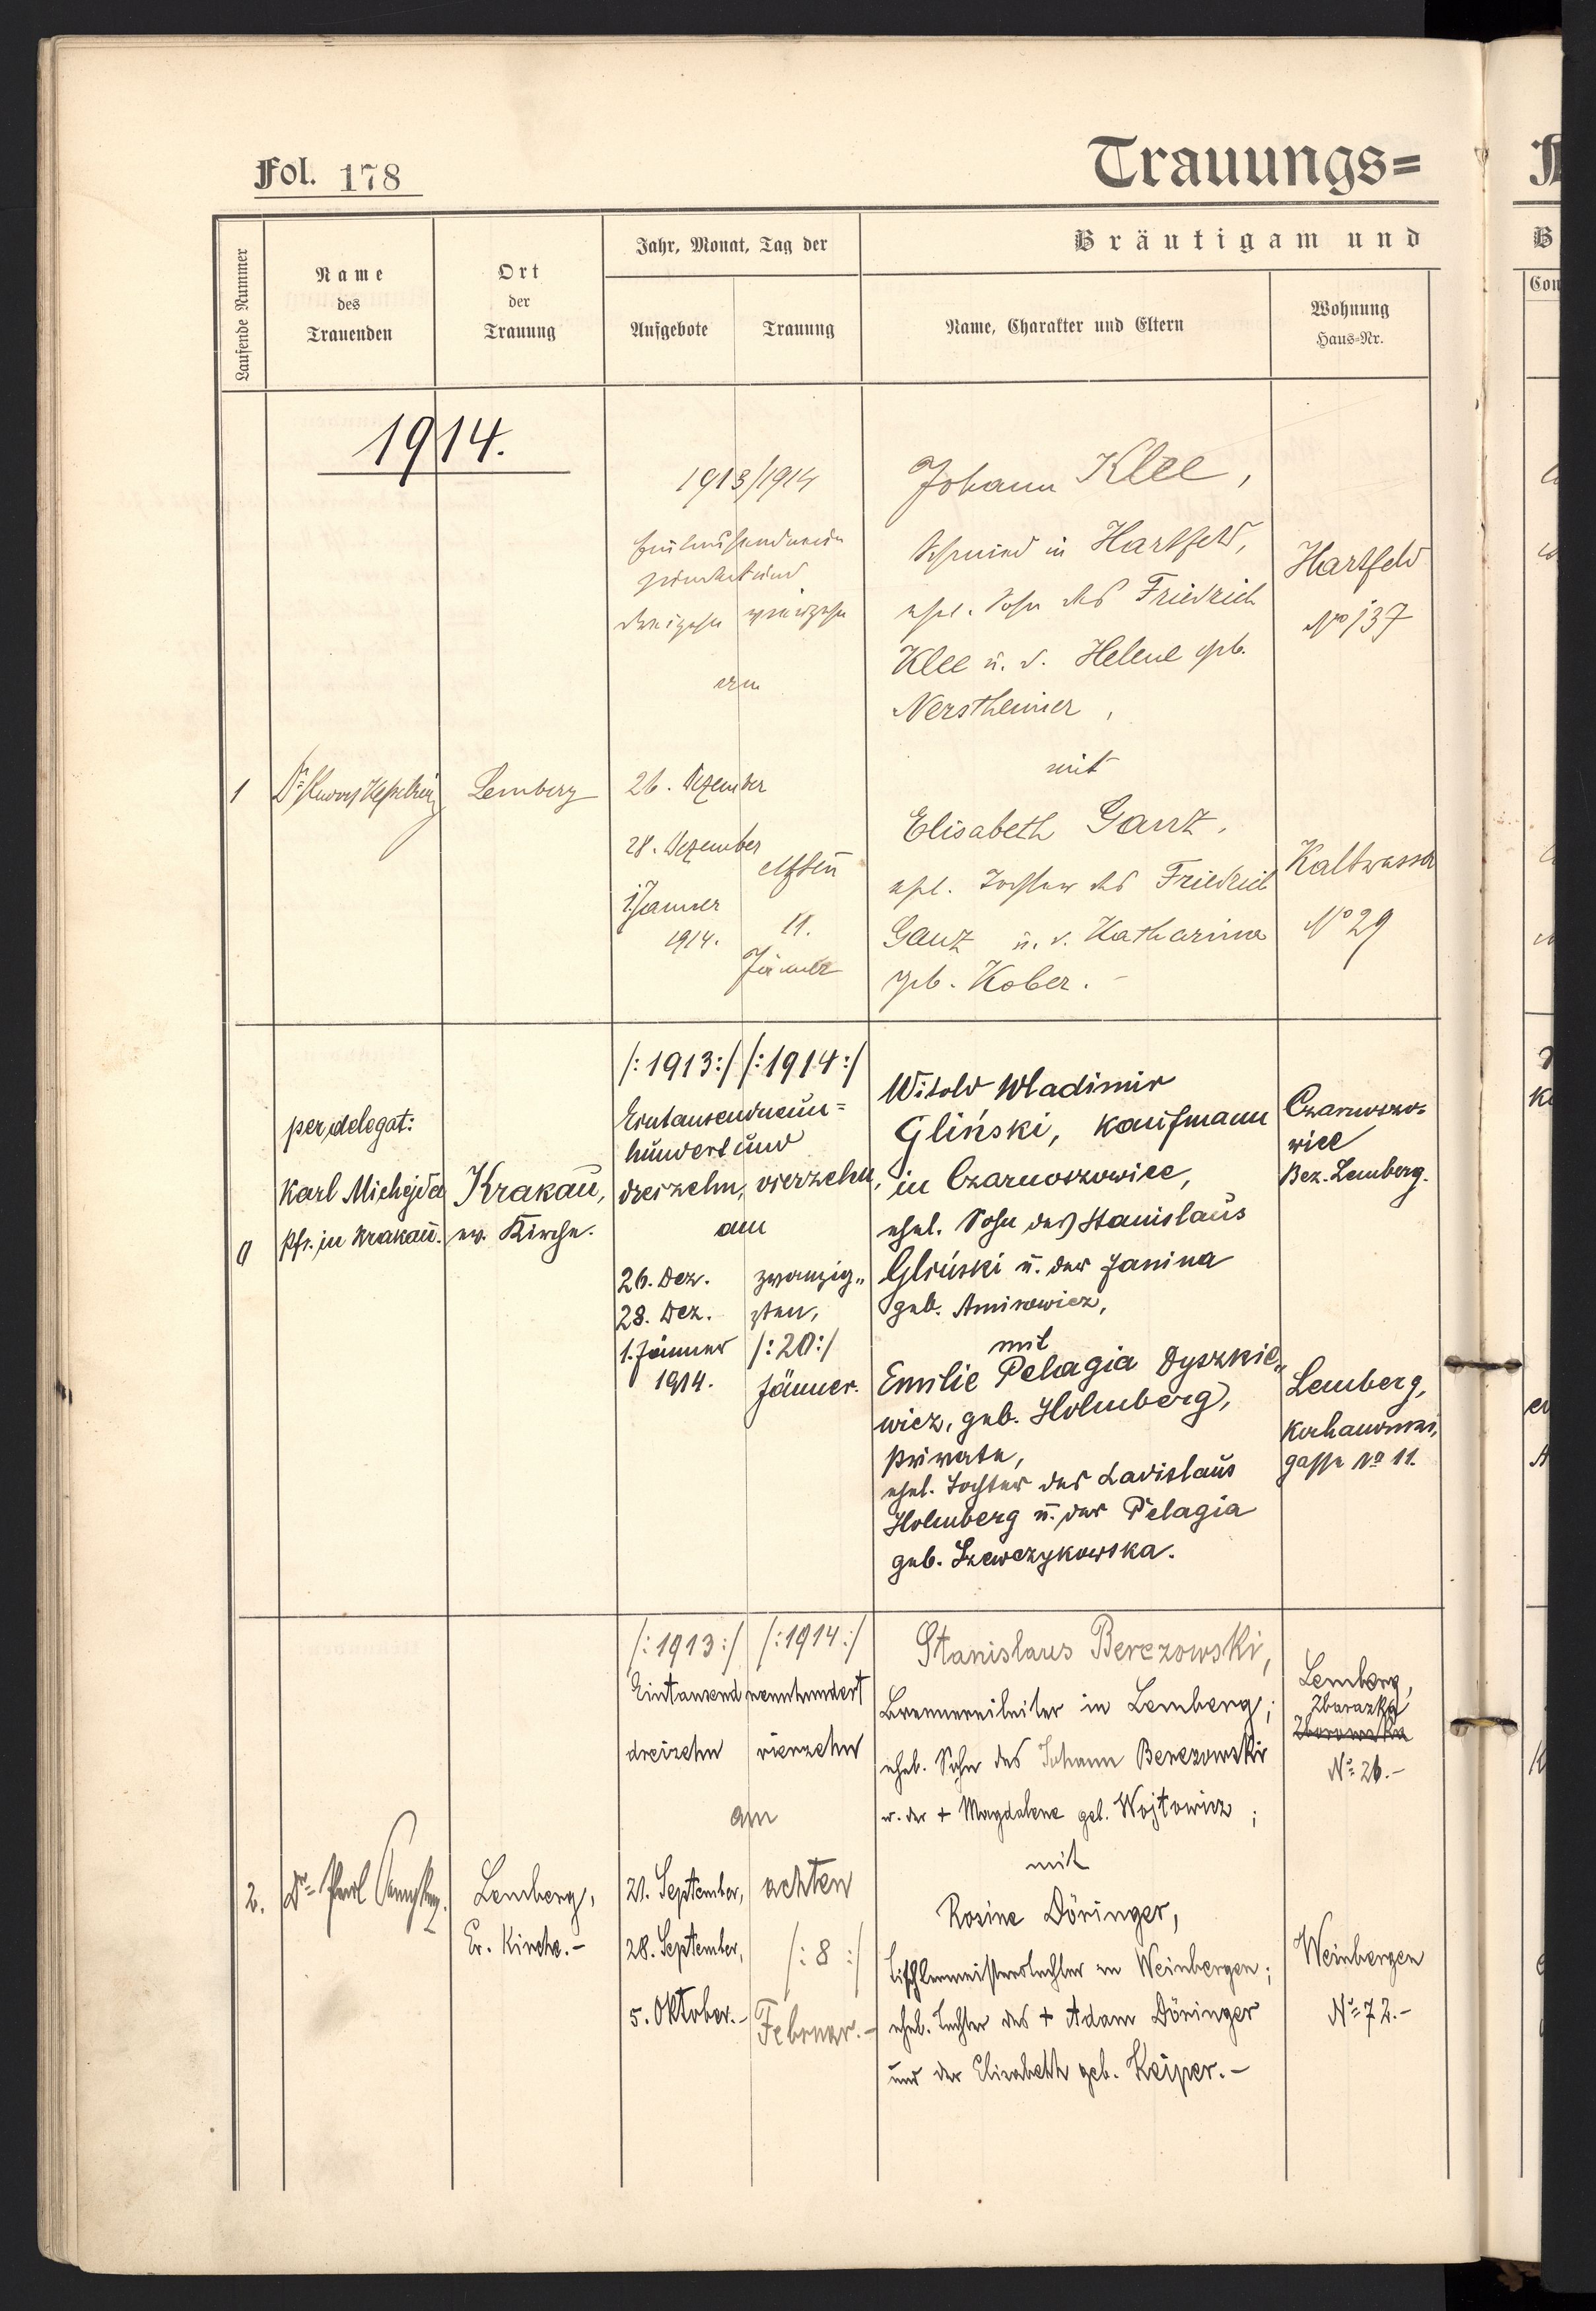 Fol. 178
Trauungs=
Laufende Nummer
Name
des
Trauenden
Ort
der
Trauung
Jahr, Monat, Tag der
Aufgebote
Trauung
Bräutigam und
Name, Charakter und Eltern
Wohnung
Haus-Nr.
1914.
1
Lemberg
1913/1914
Eintausendneun
hundertund
dreizehn vierzehn
am
26. Dezember
28. Dezember
1. Jänner
1914.
elften
11.
Jänner
Johann Klee,
Schmied in Hartfeld,
ehel. Sohn des Friedrich
Klee u. d. Helene geb.
Nerstheimer,
mit
Elisabeth Ganz,
ehel. Tochter des Friedrich
Ganz u. d. Katharina
geb. Kober.-
Hartfeld
No 137
Kaltwasser
No 29
0
per delegat:
Karl Michejda
Pfr. in Krakau.
Krakau,
ev. Kirche.
/:1913:/ /:1914:/
Eintausendneun=
hundertund
dreizehn, vierzehn,
am
26. Dez.
28. Dez.
1. Jänner
1914.
zwanzig„
sten,
/:20:/
Jänner.
Witold Wladimir
Gliński, Kaufmann
in Czarnoszowice,
ehel. Sohn des Stanislaus
Gliński u. der Janina
geb. Amirowicz,
mit
Emilie Pelagia Dyszkie„
wicz, geb. Holmberg,
Private,
ehel. Tochter des Ladislaus
Holmberg u. der Pelagia
geb. Szewczykowska.
Czarnoszo=
wice
Bez. Lemberg.
Lemberg,
gasse No 11.
2.
Dr. Paul
Lemberg,
Ev. Kirche.-
/:1913:/ /:1914:/
Eintausend neunhundert
dreizehn vierzehn
am
21. September,
28. September,
5. Oktober.-
achten
/: 8 :/
Februar.-
Stanislaus Berezowski,
Brennereileiter in Lemberg;
ehel. Sohn des Johann Berezowski
u. der + Magdalene geb. Wojtowicz;
mit
Rosine Döringer,
Tischlermeisterstochter in Weinbergen;
ehel. Tochter des + Adam Döringer
und der Elisabeth geb. Keiper.-
Lemberg,
Zbarazka
No 26.-
Weinbergen
No 72.-